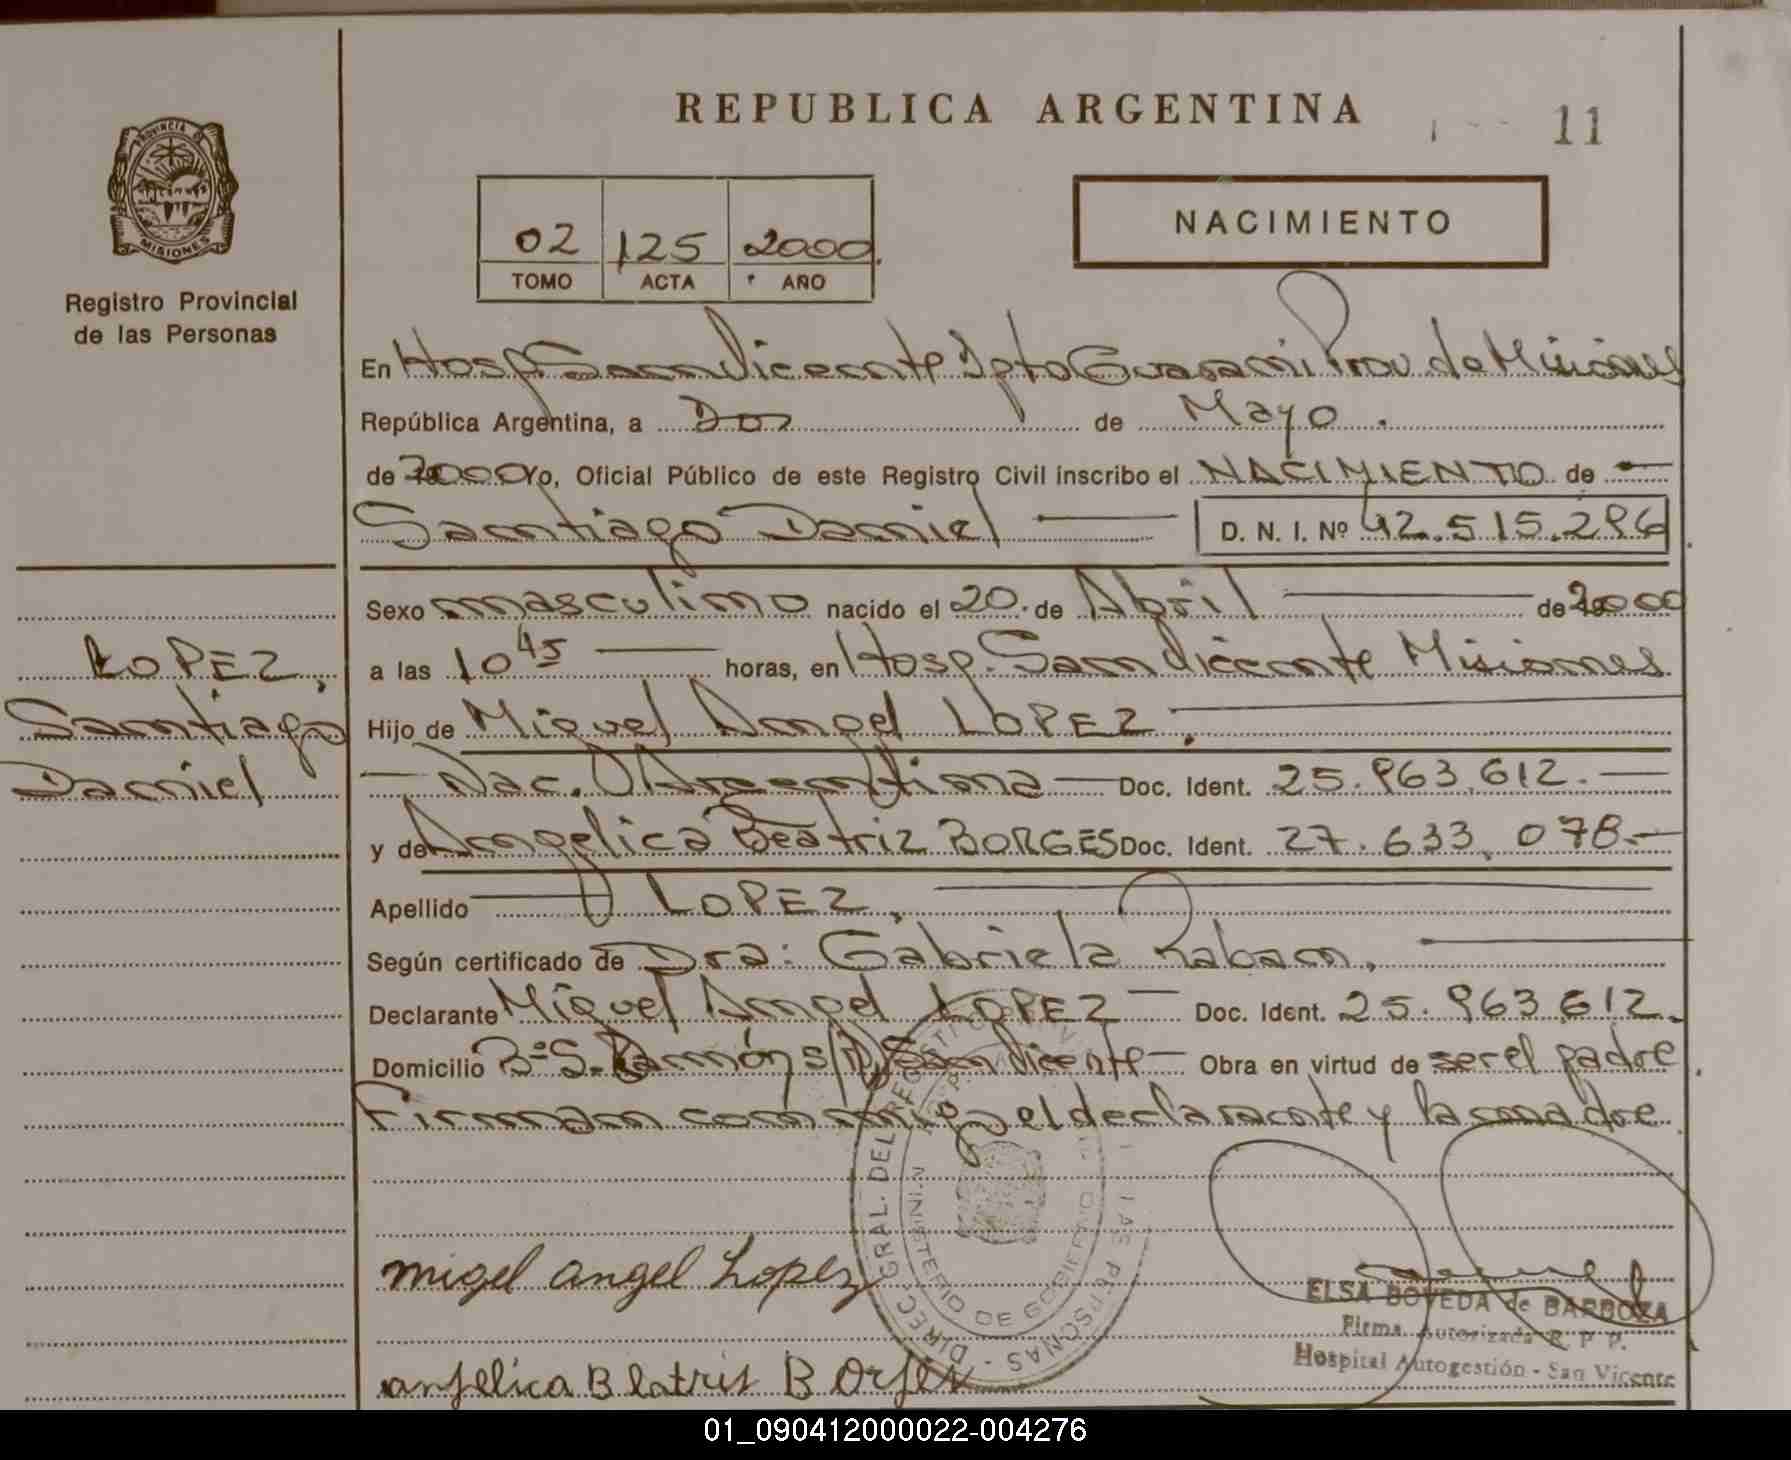 REPUBLICA ARGENTINA
11
PROVINCIA DE
MISIONES
Registro Provincial
de las Personas
02 125 2000
TOMO ACTA AÑO
NACIMIENTO
En Hosp San Vicente Dpto Guarani Prov de Misiones
República Argentina, a Dos de Mayo.
de 2000 Yo, Oficial Público de este Registro Civil inscribo el NACIMIENTO de
Santiago Daniel D. N. I. Nº 42.515.296
Sexo masculino nacido el 20 de Abril de 2000
a las 10 45 horas, en Hosp. San Vicente Misiones
Hijo de Miguel Angel LOPEZ.
Nac. Argentina Doc. Ident. 25.963.612.
y de Angelica Beatriz BORGES Doc. Ident. 27.633.078.
Apellido LOPEZ.
Según certificado de Dra: Gabriela Raban.
Declarante Miguel Angel LOPEZ Doc. Ident. 25.963.612.
Domicilio Bº S. Ramón s/n San Vicente Obra en virtud de ser el padre
Firman conmigo el declarante y la madre.
LOPEZ,
Santiago
Daniel
migel angel Lopez
angelica Beatris Borges
DIREC. GRAL. DEL REGISTRO PROV. DE LAS PERSONAS
MINISTERIO DE GOBIERNO
ELSA BOVEDA de BARBOZA
Firma Autorizada R. P. P.
Hospital Autogestión - San Vicente
01_090412000022-004276